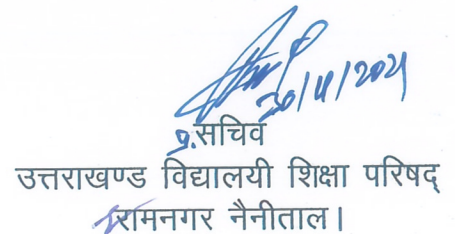 30/11/2021
प्र.सचिव
उत्तराखण्ड विद्यालयी शिक्षा परिषद्
रामनगर नैनीताल।